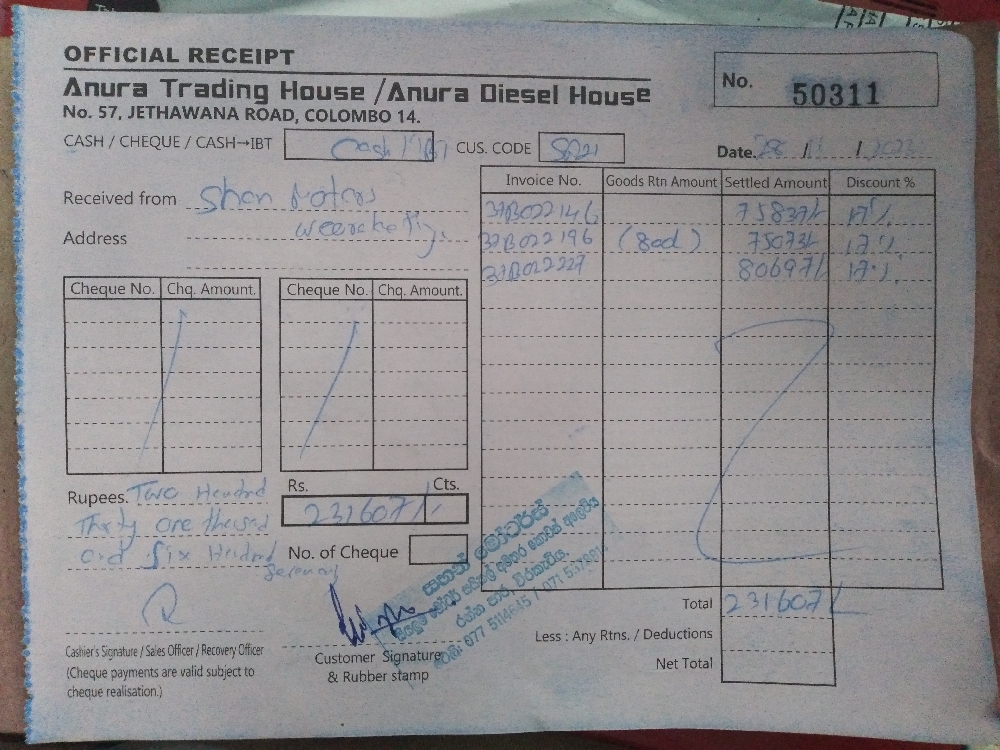 OFFICIAL RECEIPT
Anura Trading House / Anura Diesel House
No. 57, JETHAWANA ROAD, COLOMBO 14.
No. 50311
CASH / CHEQUE / CASH→IBT Cash
CUS. CODE
Date. / /
Received from Shan Motors
Address
Invoice No. Goods Rtn Amount Settled Amount Discount %
37B022146 75837/- 17%
37B022196 75073/- 17%
37B022227 80697/- 17%
Cheque No. Chq. Amount. Cheque No. Chq. Amount.
Rupees. Two Hundred
Thirty one thousand
and Six Hundred
Seven
Rs. Cts.
231607/-
No. of Cheque
සහන් මෝටර්ස්
077 5114645 /
Cashier's Signature / Sales Officer / Recovery Officer
(Cheque payments are valid subject to
cheque realisation.)
Customer Signature
& Rubber stamp
Total 231607/-
Less : Any Rtns. / Deductions
Net Total